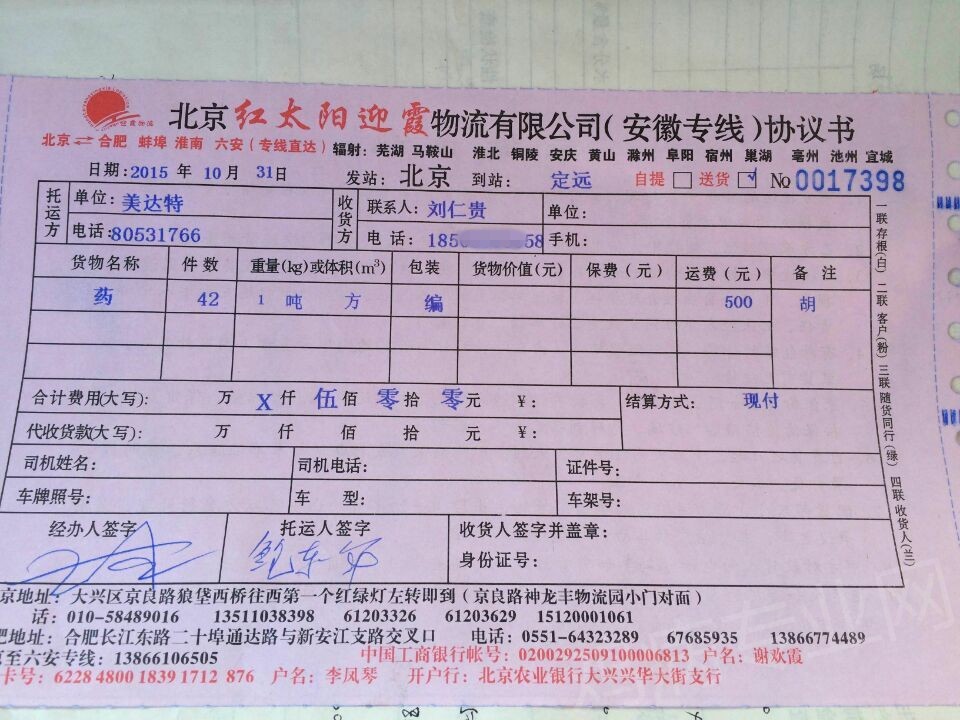 红霞物流
北京红太阳迎霞物流有限公司(安徽专线)协议书
北京⇌合肥 蚌埠 淮南 六安(专线直达)辐射:芜湖 马鞍山 淮北 铜陵 安庆 黄山 滁州 阜阳 宿州 巢湖 亳州 池州 宜城
日期:2015 年 10 月 31日 发站:北京 到站:定远 自提 □ 送货 ☑ №0017398
托运方 单位:美达特 收货方 联系人:刘仁贵 单位:
电话:80531766 电 话:185 58 手机:
货物名称 件 数 重量(kg)或体积(m³) 包装 货物价值(元) 保费(元) 运费(元) 备 注
药 42 1 吨 方 编 500 胡
合计费用(大写): 万 X 仟 伍 佰 零 拾 零 元 ¥: 结算方式: 现付
代收货款(大写): 万 仟 佰 拾 元 ¥:
司机姓名: 司机电话: 证件号:
车牌照号: 车 型: 车架号:
经办人签字 托运人签字 收货人签字并盖章:
身份证号:
一联存根(白) 二联客户(粉) 三联随货同行(绿) 四联收货人(兰)
京地址:大兴区京良路狼垡西桥往西第一个红绿灯左转即到(京良路神龙丰物流园小门对面)
话:010-58489016 13511038398 61203326 61203629 15120001061
肥地址:合肥长江东路二十埠通达路与新安江支路交叉口 电话:0551-64323289 67685935 13866774489
京至六安专线:13866106505 中国工商银行帐号:0200292509100006813 户名:谢欢霞
卡号:6228 4800 1839 1712 876 户名:李凤琴 开户行:北京农业银行大兴兴华大街支行